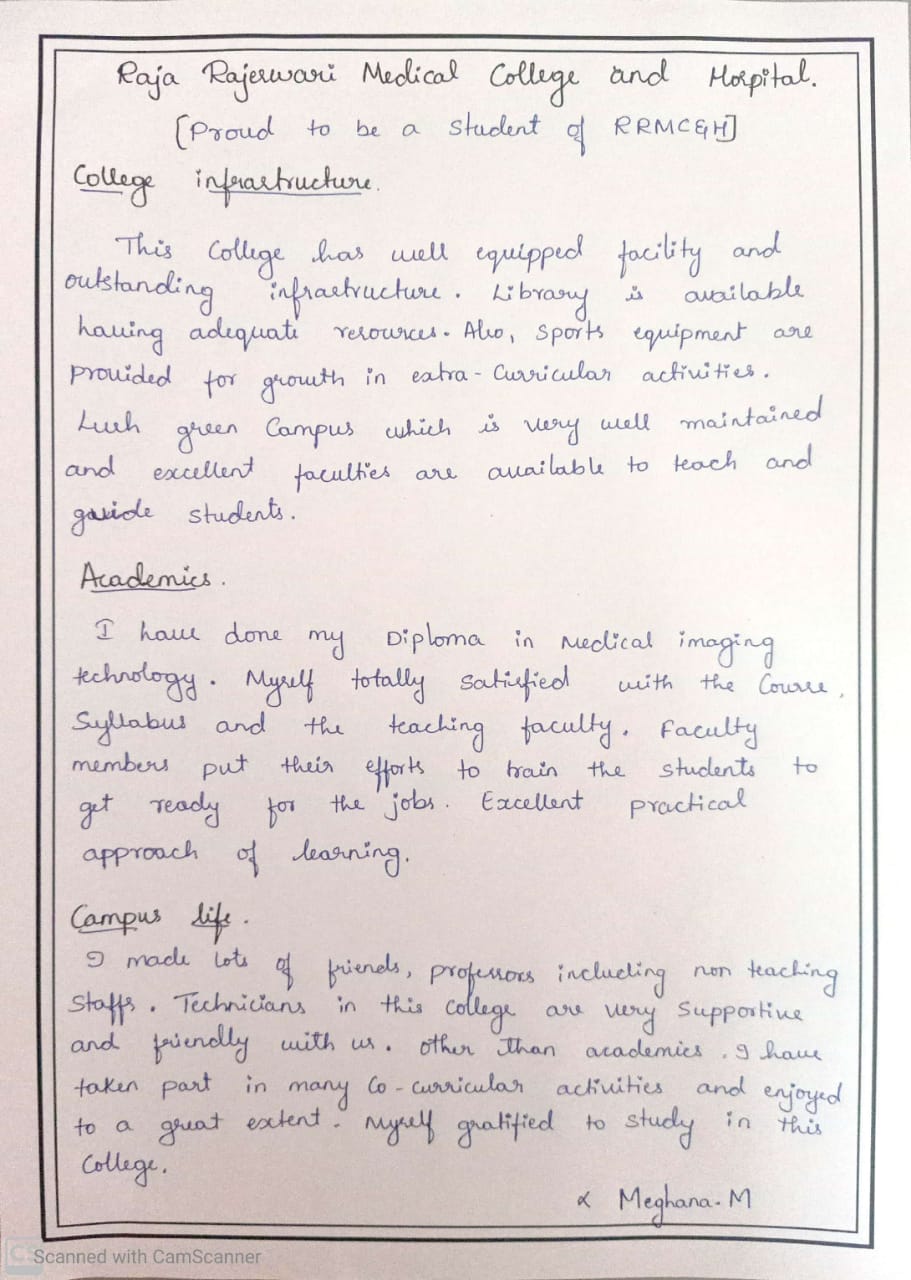 Raja Rajeswari Medical College and Hospital.
[Proud to be a student of RRMC&H]
College infrastructure.
This College has well equipped facility and
outstanding infrastructure. Library is available
having adequate resources. Also, Sports equipment are
provided for growth in extra-Curricular activities.
Lush green Campus which is very well maintained
and excellent faculties are available to teach and
guide students.
Academics.
I have done my Diploma in Medical imaging
technology. Myself totally satisfied with the Course,
Syllabus and the teaching faculty. Faculty
members put their efforts to train the students to
get ready for the jobs. Excellent practical
approach of learning.
Campus life.
I made lots of friends, professors including non teaching
Staffs. Technicians in this College are very Supportive
and friendly with us. Other than academics, I have
taken part in many Co-curricular activities and enjoyed
to a great extent. Myself gratified to study in this
College.
Meghana.M
CS Scanned with CamScanner